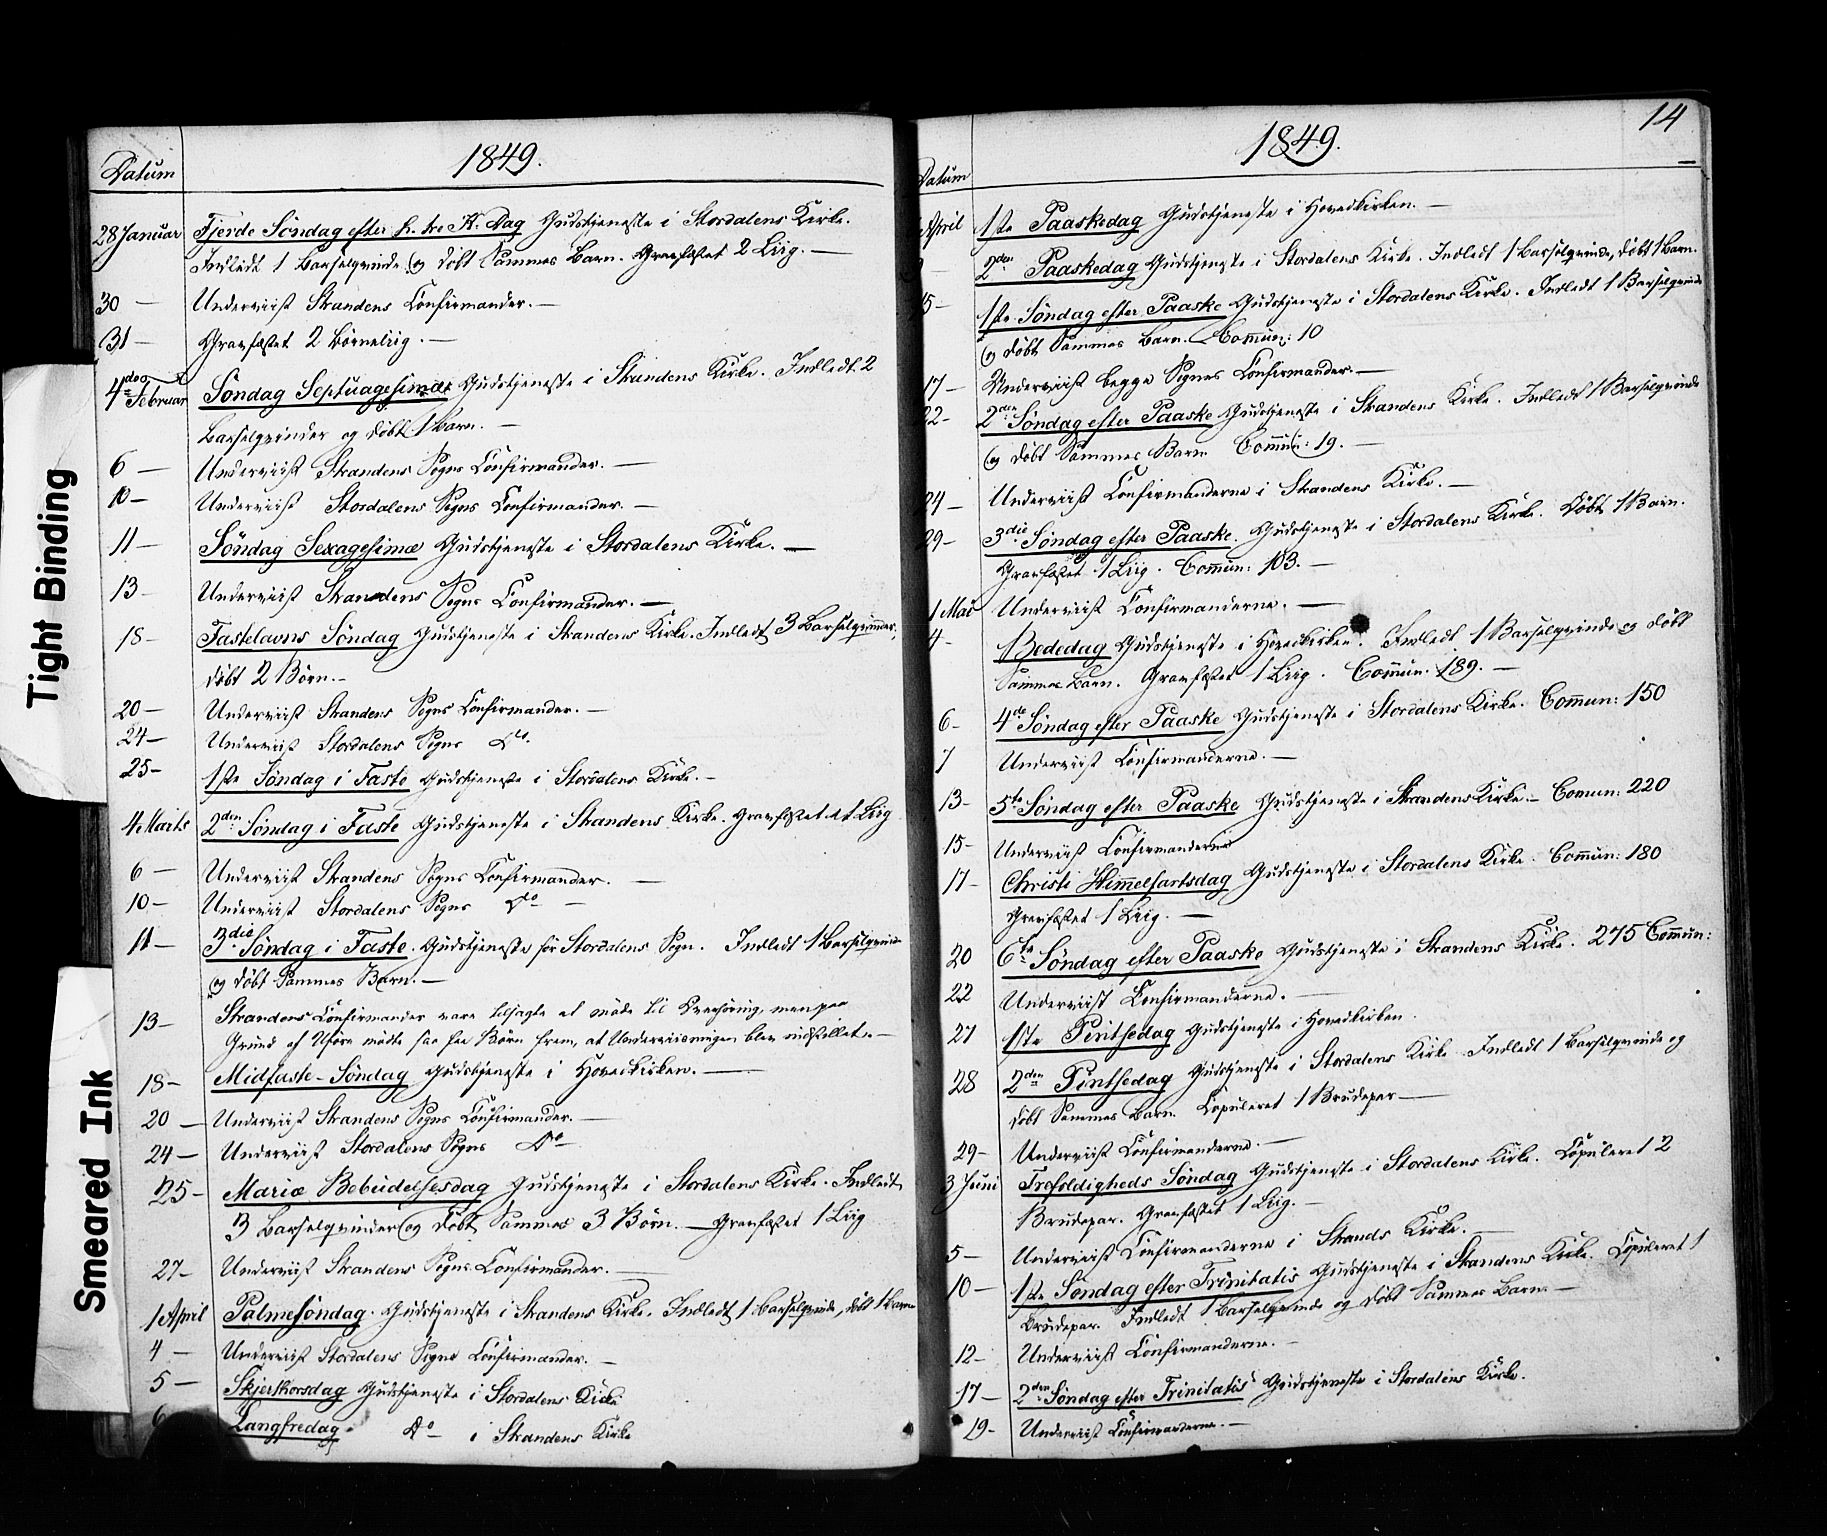 Datum
1849.
28 Januar Fjerde Søndag efter h. tre K. Dag Gudstjeneste i Stordalens Kirke.
Indledt 1 Barselqvinde og døbt Sammes Barn. Gravfæstet 2 Liig. —
30 — Underviist Strandens Confirmander. —
31 — Gravfæstet 2 Børneliig. —
4de Februar Søndag Septuagesimæ Gudstjeneste i Strandens Kirke. Indledt 2
Barselqvinder og døbt 1 Barn. —
6 — Underviist Strandens Sogns Confirmander. —
10 — Underviist Stordalens Sogns Confirmander. —
11 — Søndag Sexagesimæ Gudstjeneste i Stordalens Kirke. —
13 — Underviist Strandens Sogns Confirmander. —
18 — Fastelavns Søndag Gudstjeneste i Strandens Kirke. Indledt 3 Barselqvinder,
døbt 2 Børn. —
20 — Underviist Strandens Sogns Confirmander. —
24 — Underviist Stordalens Sogns Do.
25 — 1ste Søndag i Faste Gudstjeneste i Stordalens Kirke. —
4 Marts 2den Søndag i Faste Gudstjeneste i Strandens Kirke. Gravfæstet et Liig
6 — Underviist Strandens Sogns Confirmander. —
10 — Underviist Stordalens Sogns Do —
11 — 3die Søndag i Faste. Gudstjeneste for Stordalens Sogn. Indledt 1 Barselqvinde
og døbt Sammes Barn. —
13 — Strandens Confirmander vare tilsagte at møde til Overhøring, men paa
Grund af Uføre mødte saa faa Børn frem, at Underviisningen blev indstillet. —
18 — Midfaste-Søndag Gudstjeneste i Hovedkirken. —
20 — Underviist Strandens Sogns Confirmander. —
24 — Underviist Stordalens Sogns Do —
25 — Mariæ Bebudelsesdag Gudstjeneste i Stordalens Kirke. Indledt
3 Barselqvinder og døbt Sammes 3 Børn. — Gravfæstet 1 Liig
27 — Underviist Strandens Sogns Confirmander. —
1 April Palmesøndag. Gudstjeneste i Strandens Kirke. Indledt 1 Barselqvinde, døbt 1 Barn
4 — Underviist Stordalens Sogns Confirmander. —
5 — Skjerthorsdag Gudstjeneste i Stordalens Kirke
6 Langfredag Do — i Strandens Kirke
14
Datum
1849.
April 1ste Paaskedag Gudstjeneste i Hovedkirken. —
2den Paaskedag Gudstjeneste i Stordalens Kirke. Indledt 1 Barselqvinde, døbt 1 Barn.
15 — 1ste Søndag efter Paaske Gudstjeneste i Stordalens Kirke. Indledt 1 Barselqvinde
og døbt Sammes Barn. Commun: 10
17 — Underviist begge Sognes Confirmander. —
22 — 2den Søndag efter Paaske Gudstjeneste i Strandens Kirke. Indledt 1 Barselqvinde
og døbt Sammes Barn Commun: 19. —
24 — Underviist Confirmanderne i Strandens Kirke. —
29 — 3die Søndag efter Paaske. Gudstjeneste i Stordalens Kirke. Døbt 1 Barn.
Gravfæstet 1 Liig. Commun: 103. —
1 Mai Underviist Confirmanderne. —
4 — Bededag Gudstjeneste i Hovedkirken. Indledt 1 Barselqvinde og døbt
Sammes Barn. Gravfæstet 1 Liig. Commun. 189. —
6 — 4de Søndag efter Paaske Gudstjeneste i Stordalens Kirke. Commun: 150
7 Underviist Confirmanderne. —
13 — 5te Søndag efter Paaske Gudstjeneste i Strandens Kirke. — Comun: 220
15 — Underviist Confirmanderne
17 — Christi Himmelfartsdag Gudstjeneste i Stordalens Kirke. Commun: 180
Gravfæstet 1 Liig. —
20 6te Søndag efter Paaske Gudstjeneste i Strandens Kirke. 275 Commun:
22 Underviist Confirmanderne. —
27 1ste Pintsedag Gudstjeneste i Hovedkirken.
28 2den Pintsedag Gudstjeneste i Stordalens Kirke Indledt 1 Barselqvinde og
døbt Sammes Barn Copuleret 1 Brudepar —
29 — Underviist Confirmanderne. —
3 Juni Trefoldigheds Søndag Gudstjeneste i Stordalens Kirke. Copuleret 2
Brudepar. Gravfæstet 1 Liig. —
5 — Underviist Confirmanderne i Strands Kirke. —
10 — 1ste Søndag efter Trinitatis Gudstjeneste i Strandens Kirke. Copuleret 1
Brudepar. Indledt 1 Barselqvinde og døbt Sammes Barn —
12 — Underviist Confirmanderne. —
17 — 2den Søndag efter Trinitatis Gudstjeneste i Stordalens Kirke.
19 — Underviist Confirmanderne. —
Tight Binding
Smeared Ink